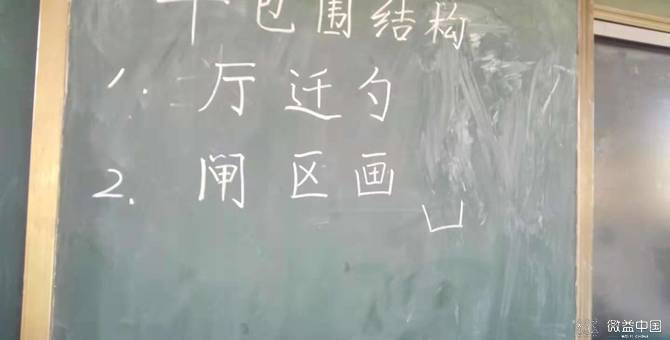 半包围结构
1. 厅 迁 勺
2. 闸 区 画
凵
微益中国